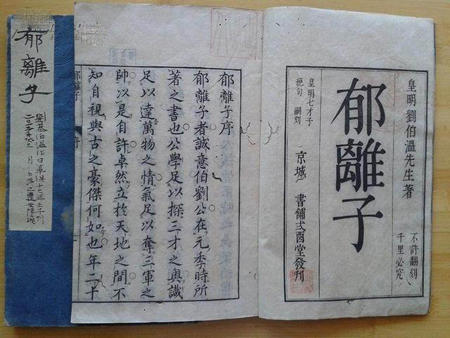 皇明劉伯溫先生著
郁離子
不許翻刻
千里必究
皇明七才子
京城 書鋪弍酉堂發刋
郁離子序
郁離子者誠意伯劉公在元季時所
著之書也公學足以探三才之奧識
足以達萬物之情氣足以奪三軍之
帥以是自許卓然立於天地之間不
知自視與古之豪傑何如也年二十
郁離子